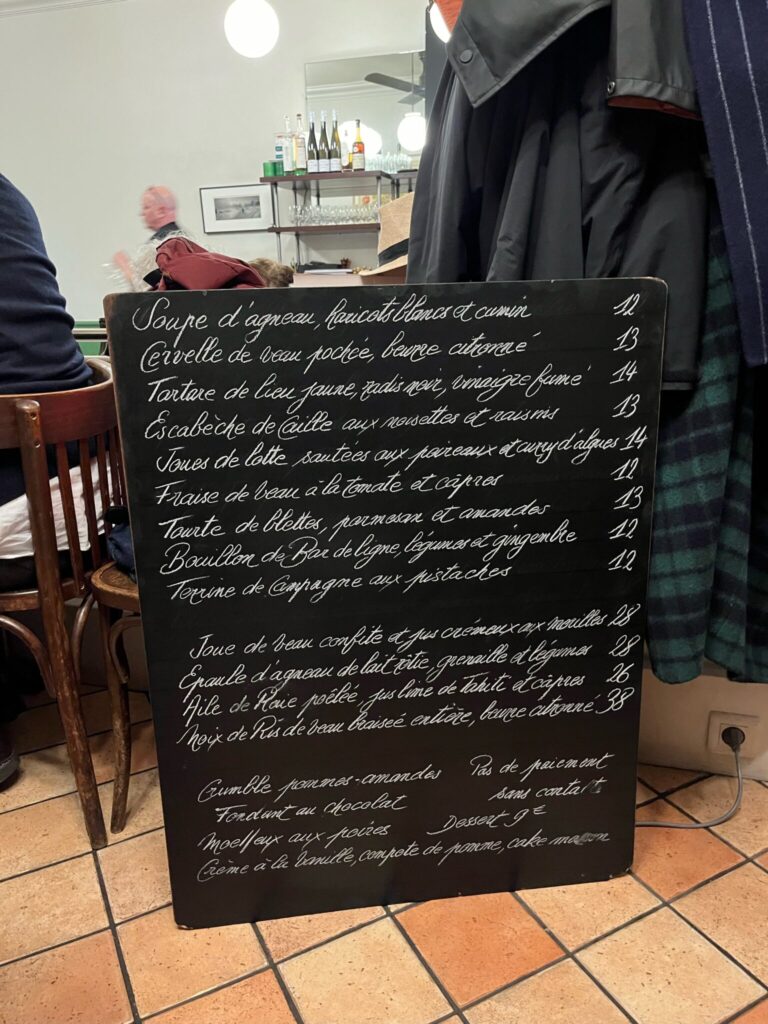 Soupe d'agneau, haricots blancs et cumin 12
Cervelle de veau pochée, beurre citronné 13
Tartare de lieu jaune, radis noir, vinaigre fumé 14
Escabèche de Caille aux noisettes et raisins 13
Joues de lotte sautées aux poireaux et curry d'algues 14
Fraise de veau à la tomate et câpres 12
Tourte de blettes, parmesan et amandes 13
Bouillon de Bar de ligne, légumes et gingembre 12
Terrine de Campagne aux pistaches 12
Joue de veau confite et jus crémeux aux morilles 28
Epaule d'agneau de lait rôtie, grenaille et légumes 28
Aile de Raie poêlée, jus lime de Tahiti et câpres 26
Noix de Ris de veau braisée entière, beurre citronné 38
Crumble pommes-amandes
Fondant au chocolat
Moelleux aux poires
Crème à la Vanille, compote de pomme, cake maison
Pas de paiement
sans contact
Dessert 9€